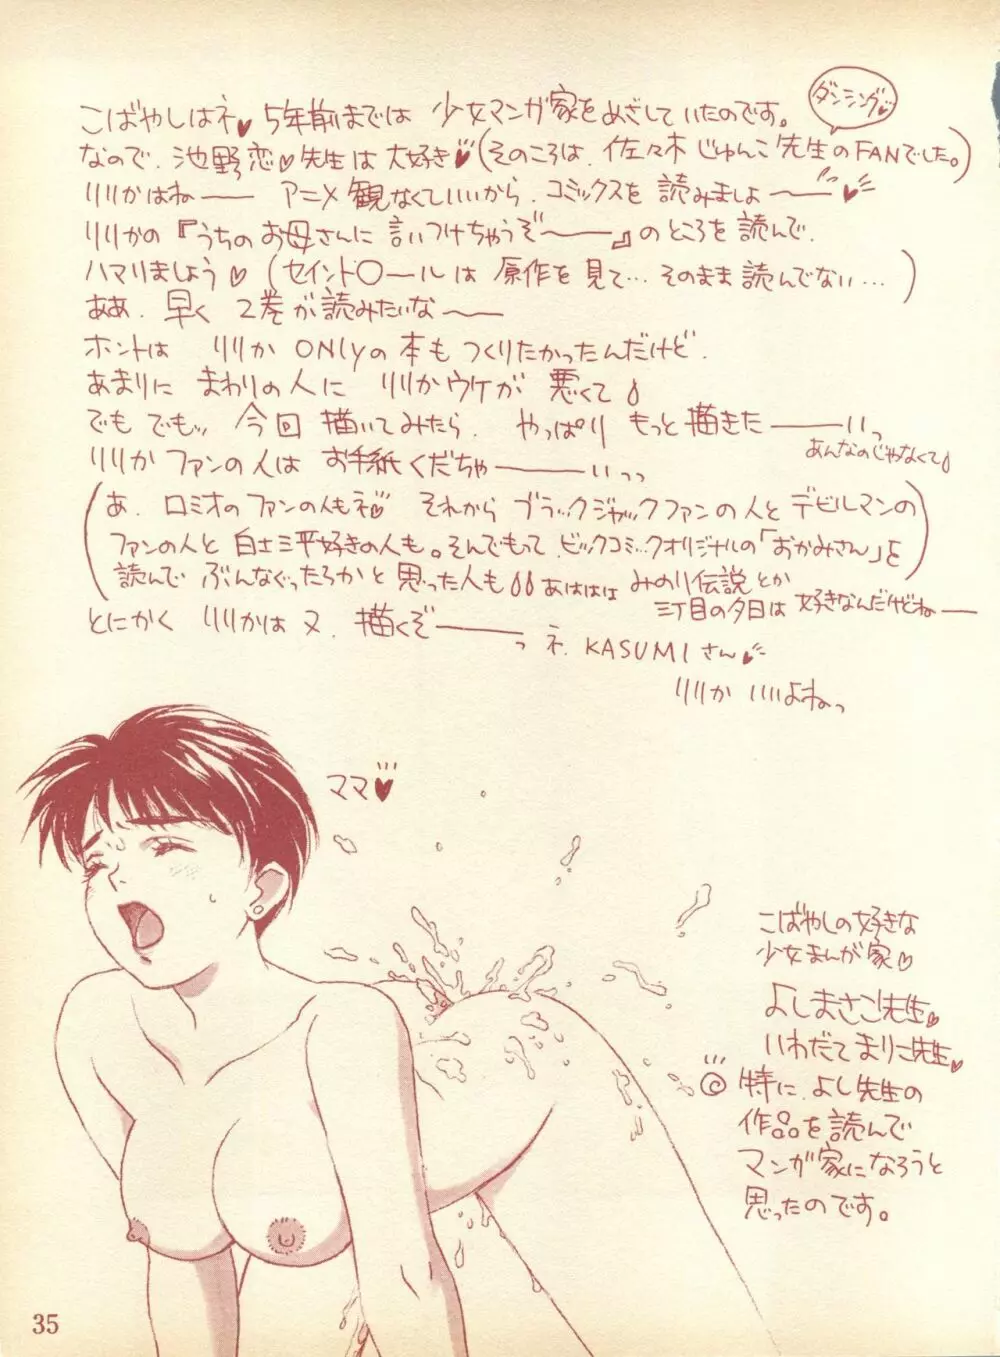 こばやしはネ♥ 5年前までは 少女マンガ家をめざしていたのです。
ダンシング♥
なので、池野恋♡先生は大好き♥(そのころは、佐々木じゅんこ先生のFANでした。)
リリかはねー アニメ観なくていいから、コミックスを読みましょー♥
リリかの『うちのお母さんに言いつけちゃうぞー』のところを読んで、
ハマりましょう♡(セイント〇ールは原作を見て…そのまま読んでない…)
ああ、早く 2巻が読みたいなー
ホントは リリか ONLyの本もつくりたかったんだけど、
あまりに まわりの人に リリかウケが 悪くて
でもでもッ 今回 描いてみたら、やっぱり もっと描きたーいっ
あんなのじゃなくて
リリかファンの人は お手紙くだちゃーいっっ
(あ、ロミオのファンの人もネ♥ それから ブラックジャックファンの人とデビルマンの
ファンの人と 白土三平好きの人も。そんでもって ビックコミックオリジナルの「おかみさん」を
読んで ぶんなぐったろかと思った人も あははは みのり伝説とか
三丁目の夕日は 好きなんだけどねー
とにかく リリかは又、描くぞーっ ネ、KASUMIさん♥
リリか いいよねっ
ママ♥
こばやしの好きな
少女まんが家♡
よしまさこ先生♥
いわだてまりこ先生♥
◎特に、よし先生の
作品を読んで
マンガ家になろうと
思ったのです。
35